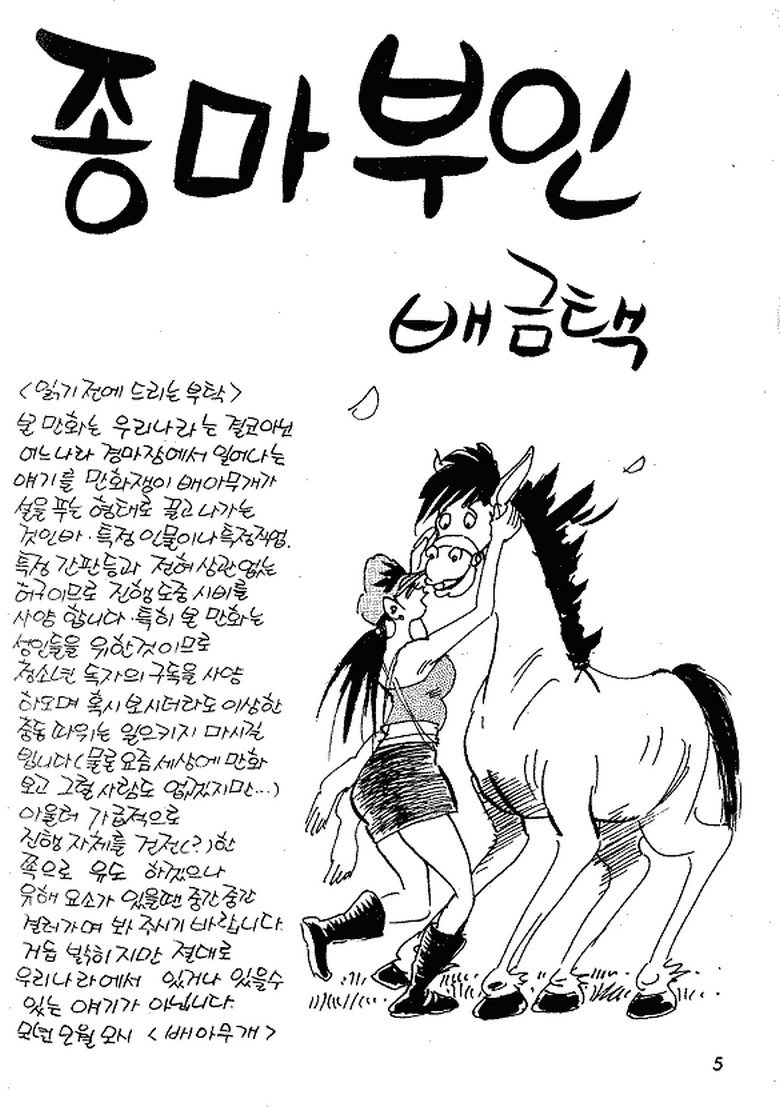 종마부인
배금택
<읽기 전에 드리는 부탁>
본 만화는 우리나라는 결코아닌
어느나라 경마장에서 일어나는
얘기를 만화쟁이 배아무개가
썰을 푸는 형태로 끌고 나가는
것인바·특정인물이나 특정직업.
특정 간판등과 전혀 상관없는
허구이므로 진행도중 시비를
사양 합니다·특히 본 만화는
성인들을 위한것이므로
청소년 독자의 구독을 사양
하오며 혹시 보시더라도 이상한
충동 따위는 일으키지 마시길
빕니다(물론 요즘 세상에 만화
보고 그럴 사람도 없겠지만...)
아울러 가급적으로
진행 자체를 건전(?)한
쪽으로 유도 하겠으나
유해 요소가 있을땐 중간중간
걸러가며 봐 주시기 바랍니다.
거듭 밝히지만 절대로
우리나라에서 있거나 있을수
있는 얘기가 아닙니다.
모년 모월 모시 <배아무개>
5